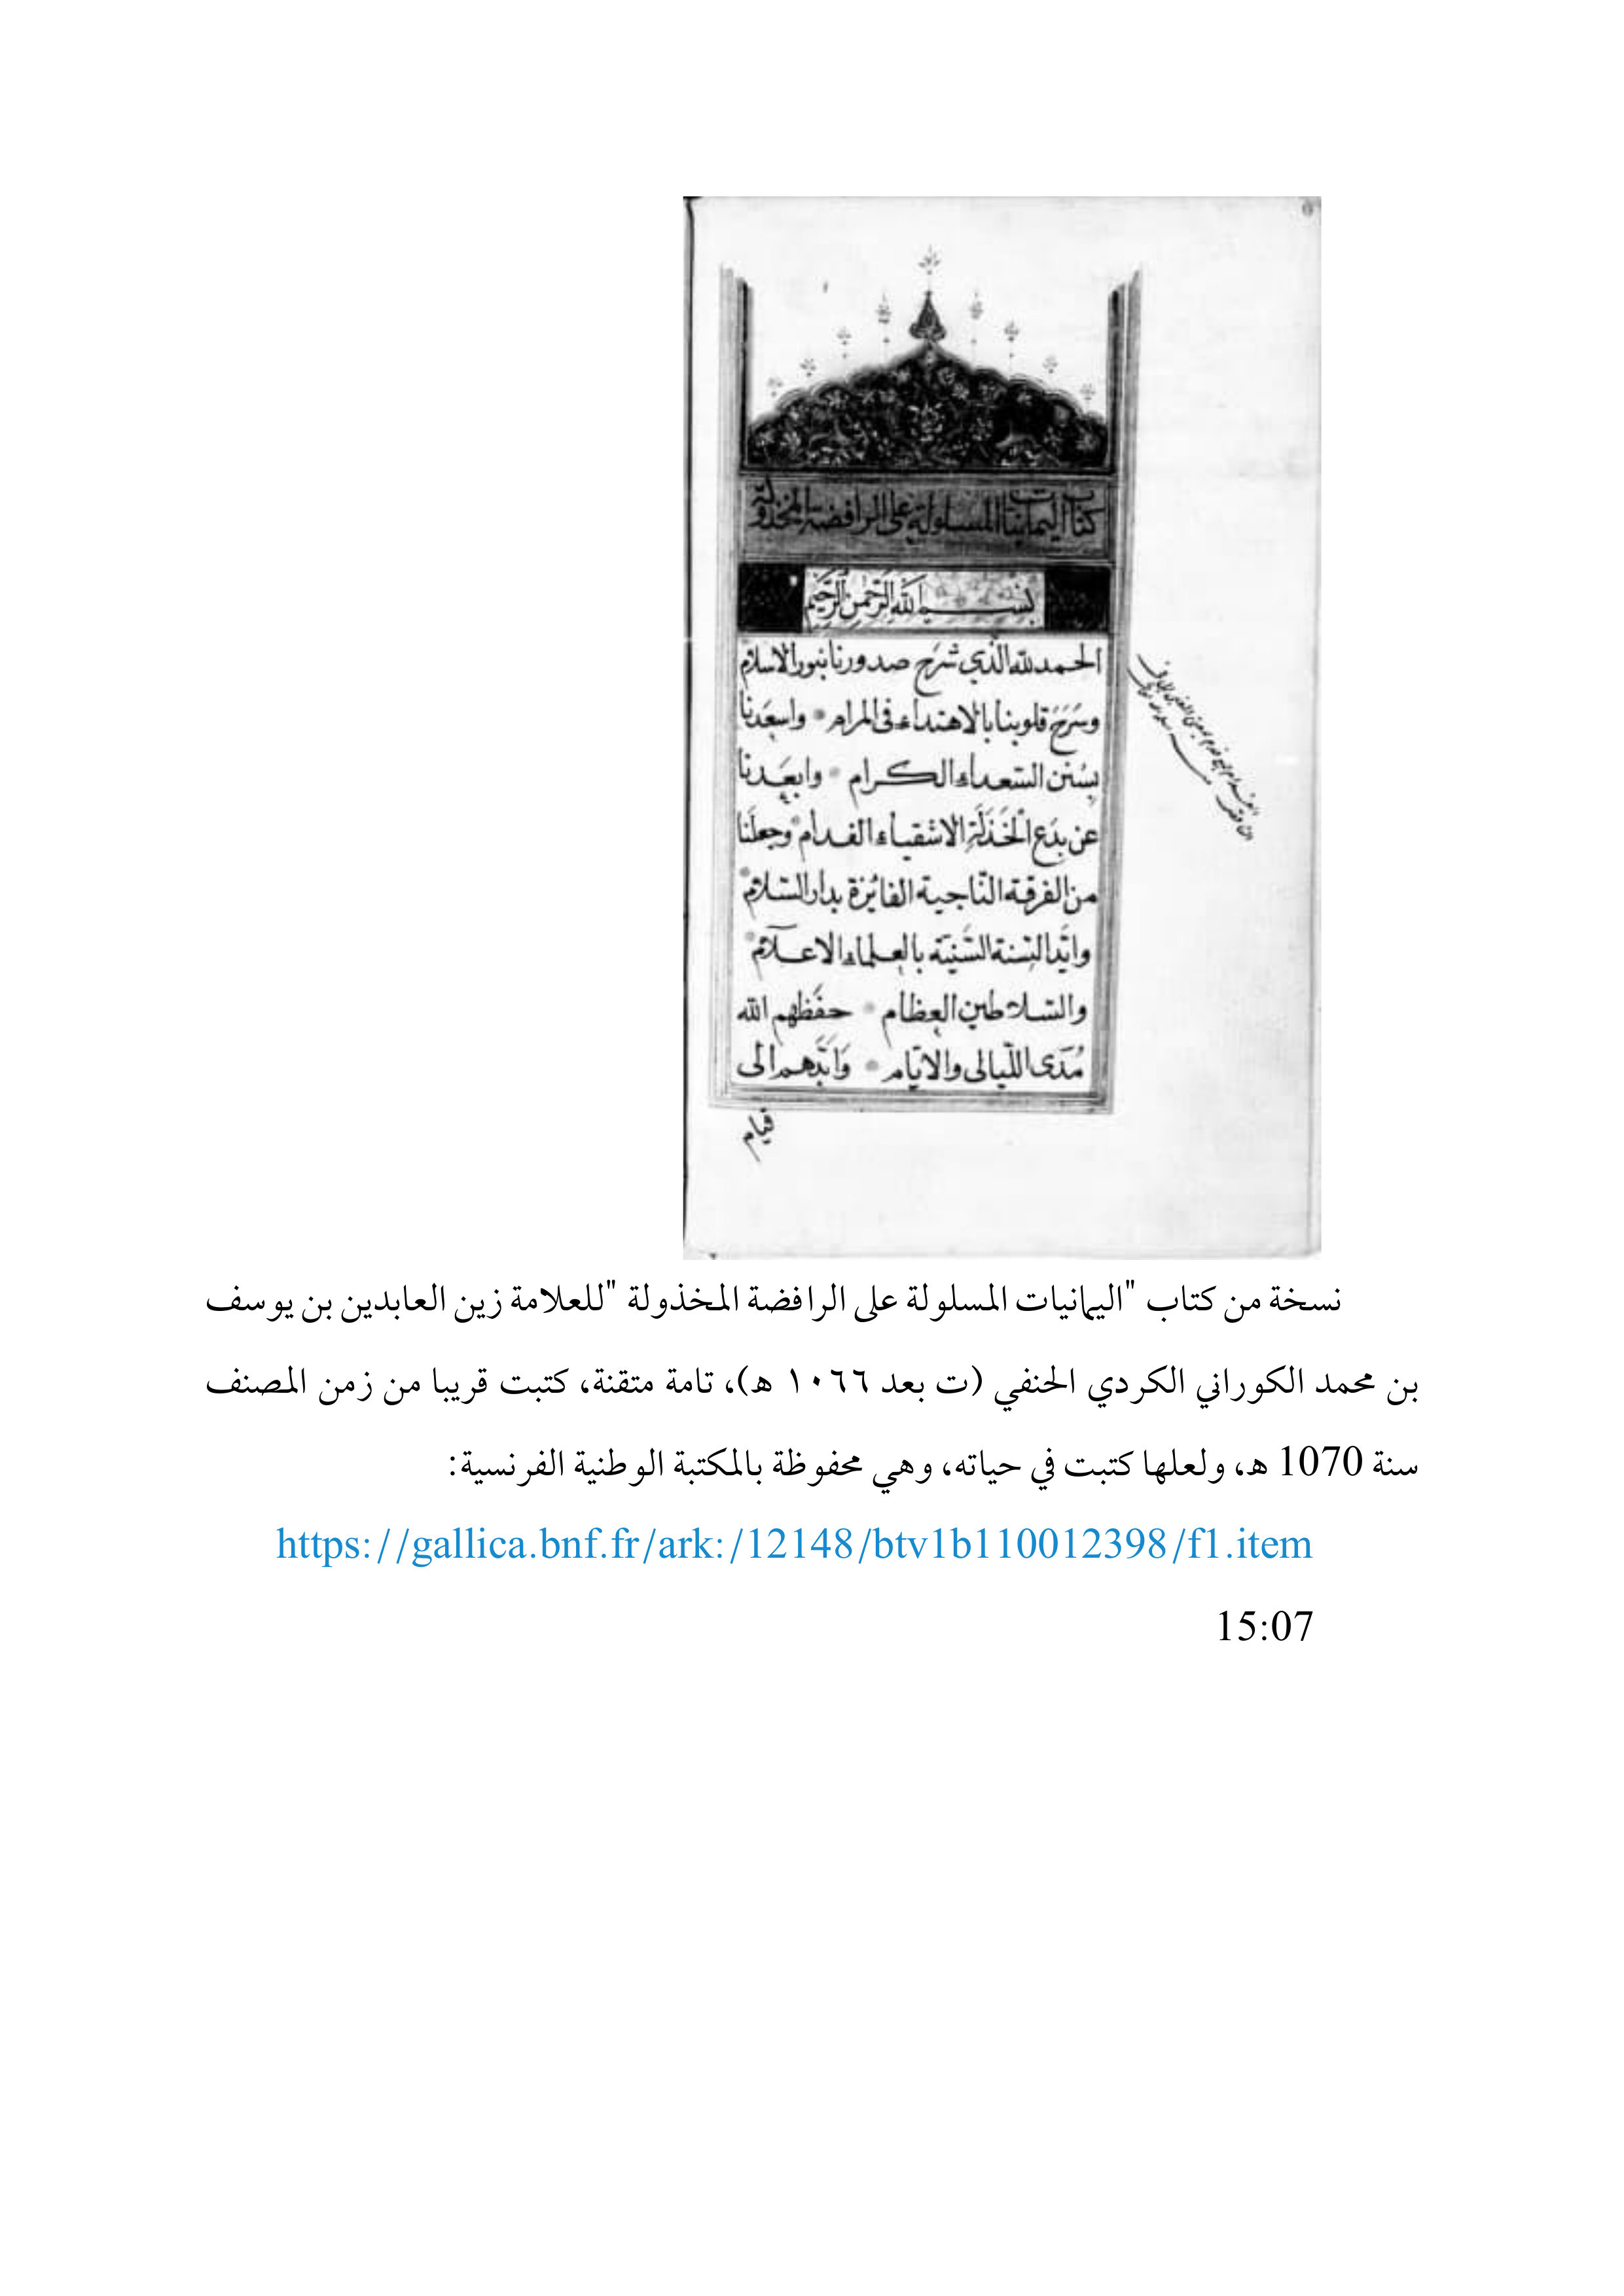 كتاب اليمانيات المسلولة على الرافضة المخذولة
بسم الله الرحمن الرحيم
الحمد لله الذي شرح صدورنا بنور الاسلام
وسرح قلوبنا بالاهتداء فى المرام واسعدنا
بسنن السعداء الكرام وابعدنا
عن بدع الخذلة الاشقياء الفدام وجعلنا
من الفرقة الناجية الفائزة بدار السلام
وايد السنة السنية بالعلماء الاعلام
والسلاطين العظام حفظهم الله
مدى الليالى والايام وابدهم الى
قيام
الفدام
نسخة من كتاب "اليمانيات المسلولة على الرافضة المخذولة "للعلامة زين العابدين بن يوسف
بن محمد الكوراني الكردي الحنفي (ت بعد ١٠٦٦ هـ)، تامة متقنة، كتبت قريبا من زمن المصنف
سنة 1070 هـ، ولعلها كتبت في حياته، وهي محفوظة بالمكتبة الوطنية الفرنسية:
https://gallica.bnf.fr/ark:/12148/btv1b110012398/f1.item
15:07